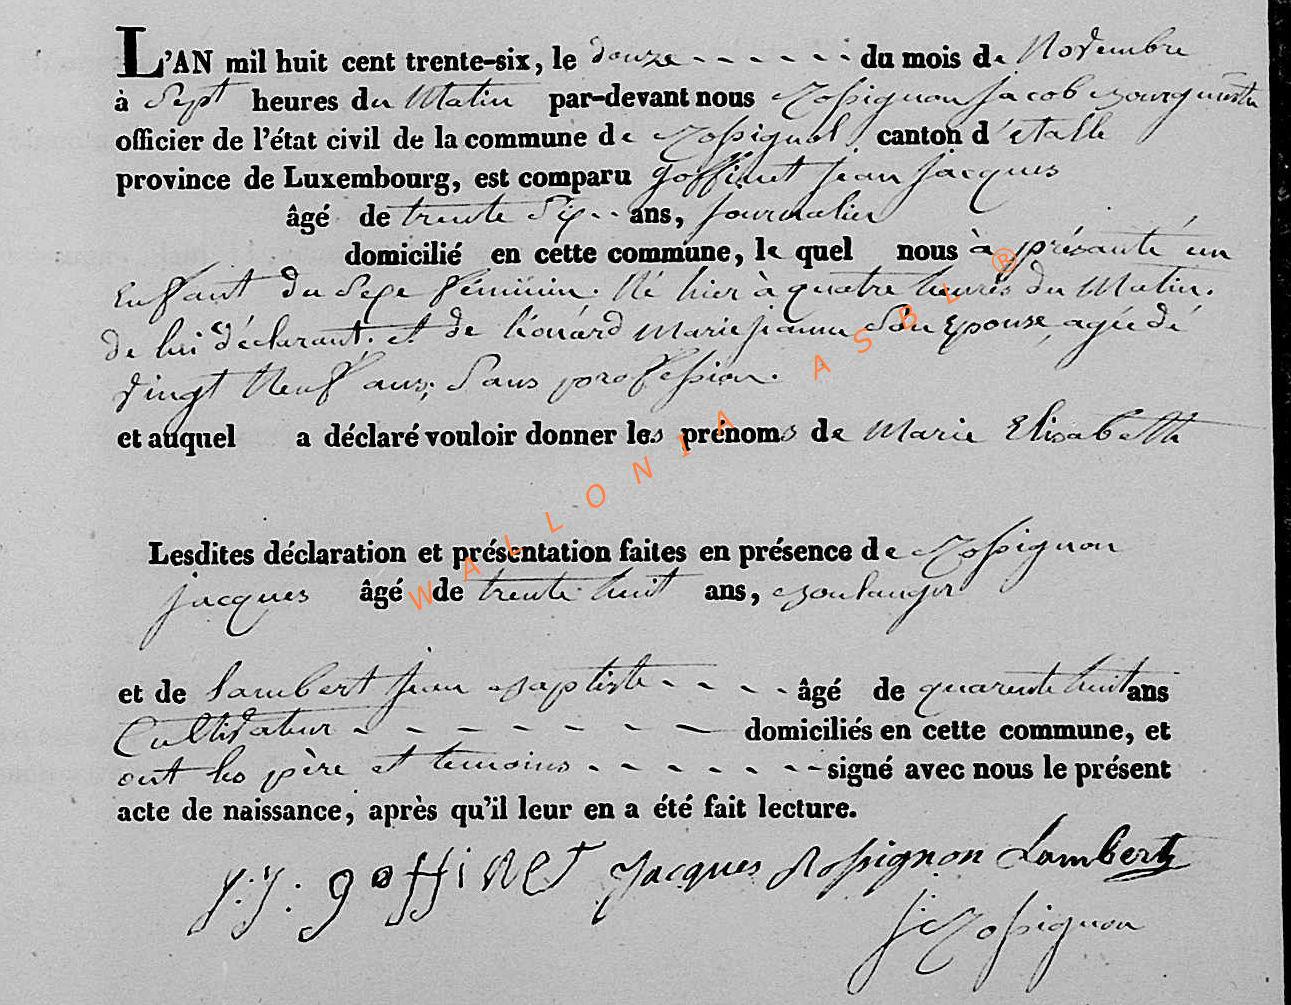 L'AN mil huit cent trente-six, le douze - - - - - - du mois de Novembre
à Sept heures du Matin par-devant nous Rossignon Jacob Bourguestre
officier de l'état civil de la commune de Rossignol, canton d'etalle
province de Luxembourg, est comparu goffinet jean jacques
âgé de trente Six - - ans, journalier
domicilié en cette commune, le quel nous à présanté un
Enffant du Sexe féminin. Né hier à quatre heures du Matin.
de lui déclarant. et de léonard Marie jeanne Son Epouse, agée dé
vingt Neuf ans; Sans profession.
et auquel a déclaré vouloir donner les prénoms de Marie Elisabetth
Lesdites déclaration et présentation faites en présence de Rossignon
jacques âgé de trente huit ans, Boulanger
et de lambert jean Baptiste - - - - âgé de quarente huit ans
Cultivateur - - - - - - - domiciliés en cette commune, et
ont les père et temoins - - - - - - - signé avec nous le présent
acte de naissance, après qu'il leur en a été fait lecture.
j: j: goffinet Jacques Rossignon Lambert
J Rossignon
WALLONIA ASBL ®